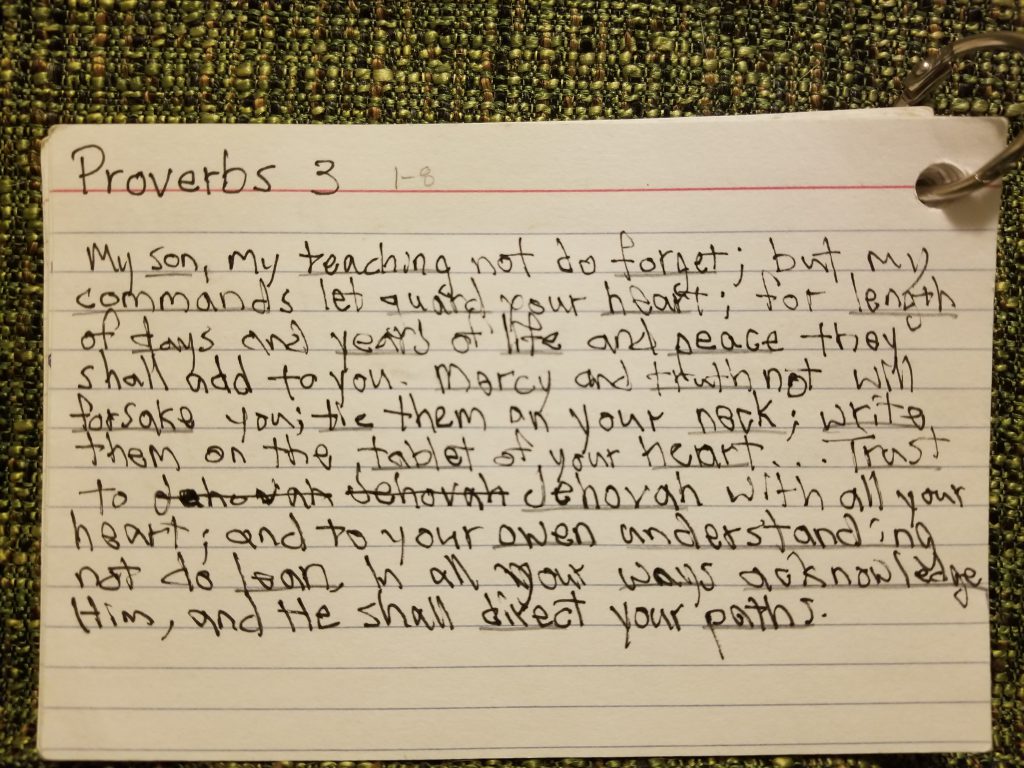 Proverbs 3 1-8
My son, my teaching not do forget; but my
commands let guard your heart; for length
of days and years of life and peace they
shall add to you. Mercy and truth not will
forsake you; tie them on your neck; write
them on the tablet of your heart... Trust
to Jehovah Jehovah Jehovah with all your
heart; and to your owen understanding
not do lean. In all your ways acknowledge
Him, and He shall direct your paths.